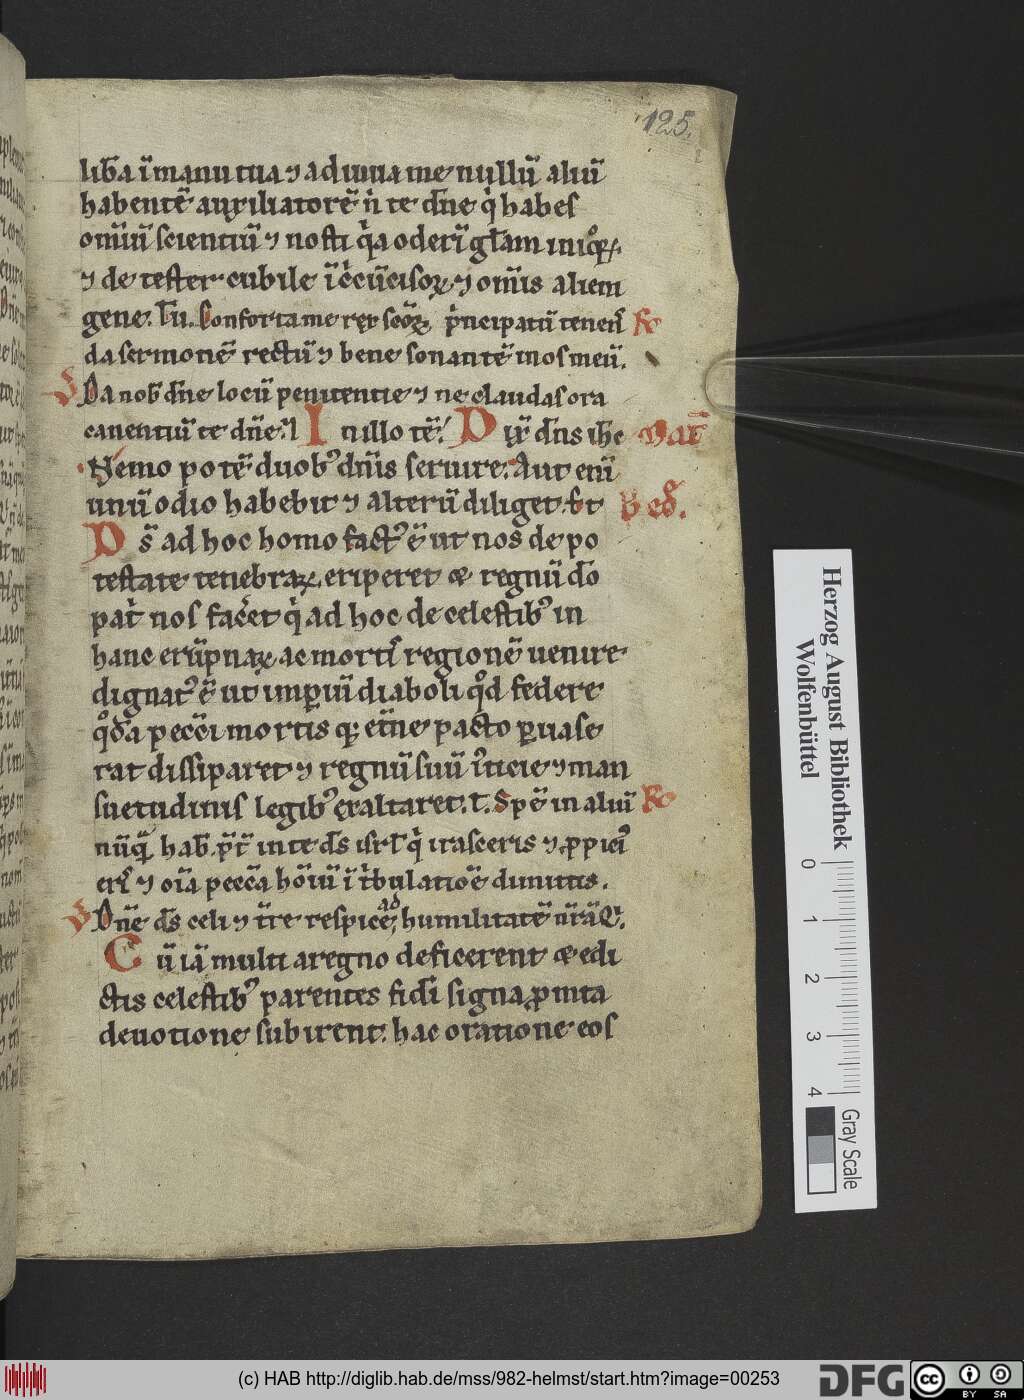 125.
lib̄a ī manu tua ⁊ adiuua me nullū aliū
habentē auxiliatorē n̄ te dn̄e qͥ habes
omīū scientiū ⁊ nosti qͥa oderī gl̄am iniqͦꝝ
⁊ de tester cubile īcͥcūcisoꝝ ⁊ omīs aliem
gene. Conforta me rex sc̄oꝝ prͥncipatū tenens R̄
da sermonē rectū ⁊ bene sonantē in os meū.
V Da nob̄ dn̄e locū penitentie ⁊ ne claudas ora
canentiū te dn̄e. In illo tē. Dix̄ dn̄s ih̄c Mat̄
Nemo potē duobꝰ dn̄is seruire. Aut enī
unū odio habebit ⁊ alterū diliget. Bed̄.
Ds̄ ad hoc homo factꝰ ē ut nos de po
testate tenebraꝝ eriperet & regnū dō
patͥ nos facͥet qͥ ad hoc de celestibꝰ in
hanc erūpnaꝝ ac mortis regionē uenire
dignatꝰ ē ut imꝑiū diaboli qͦd federe
qͦda peccͥi mortis qꝫ etn̄e pacto ꝑuase
rat dissiparet ⁊ regnū suū iͥticie ⁊ man
suetudinis legibꝰ exaltaret. Spē in aliū R̄
nūqͣ hab. pt̄ in te ds̄ isrl̄ qͥ irasceris ⁊ ꝓpicī
erͥs ⁊ oīa pecc̄a hōīū ī tͥbulatiōe dimittis.
V Dn̄e ds̄ celi ⁊ tr̄e respice ad humilitatē nr̄ā
Cū iā multi a regno deficerent & edi
ctis celestibꝰ parentes fidī signa ꝓmta
deuotione subirent. hac oratione eos
Herzog August Bibliothek
Wolfenbüttel
0 1 2 3 4
Gray Scale
(c) HAB http://diglib.hab.de/mss/982-helmst/start.htm?image=00253
DFG
cc BY SA